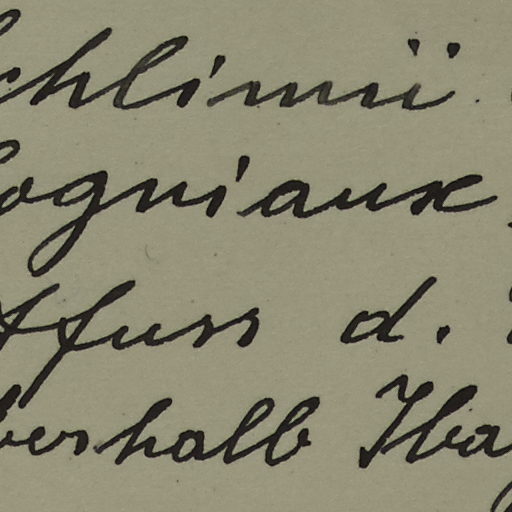 chlimii
Cogniaux,
tfuss d.
berhalb Iba